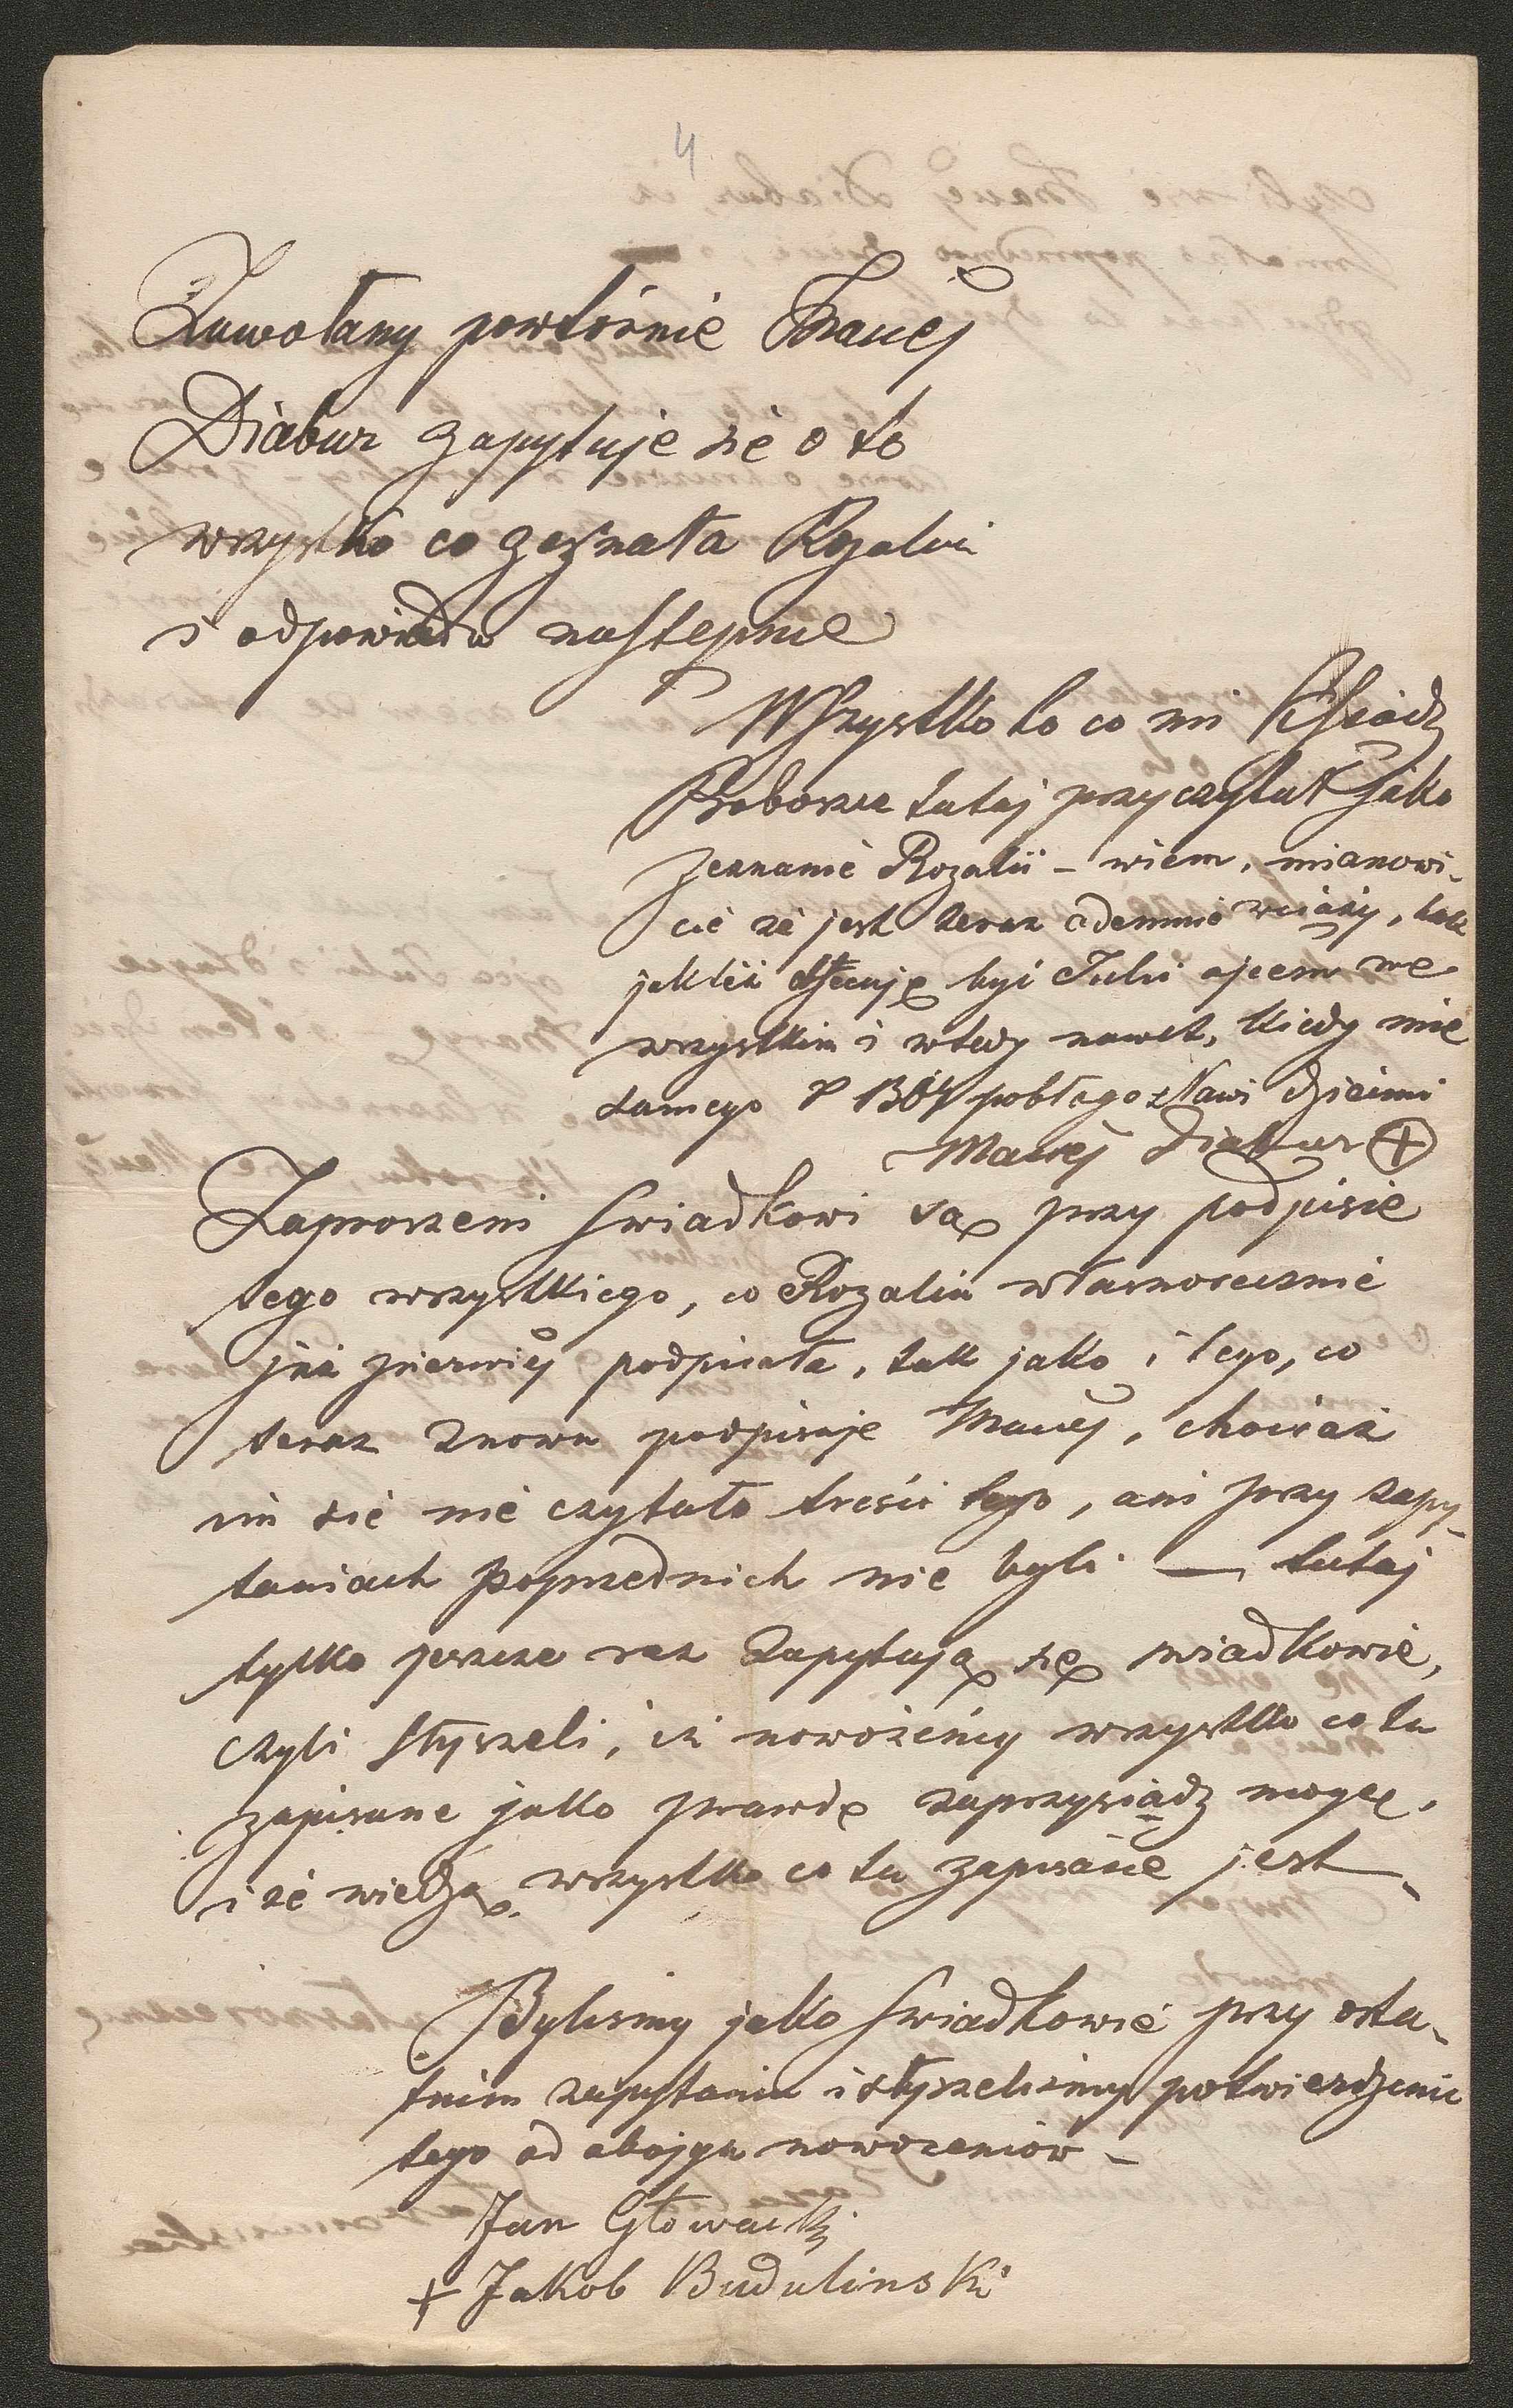 4
Zawołany powtórnie Maciej
Diabur zapytuje sie o to
wszystko co zeznała Rozalia
i odpowiada nastepnie
Wszystko to co mi Ksiądz
Proboszcz tutaj przyczytał jako
zeznanie Rozalii – wiem, mianowi-
cie że jest teraz odemnie wciąży, tak
jak też obiecuję być Julii ojcem we
wszystkim i wtedy nawet, kiedy mie
samego P Bóg pobłogosławi dziećmi
Maciej Diabur +
Zaproszeni swiadkowi są przy podpisie
tego wszystkiego, co Rozalia własnorecznie
już pierwiej podpisała, tak jako i tego, co
teraz znowu podpisuje Maciej, chociaż
im sie nie czytało treści tego, ani przy zapy-
taniach poprzednich nie byli — tutaj
tylko jeszcze raz zapytują się swiadkowie,
czyli słyszeli, iż nowożeńcy wszystko co tu
zapisane jako prawdę zaprzysiądz mogę,
i że wiedzą wszystko co tu zapisane jest –
Bylismy jako swiadkowie przy osta-
tnim zapytaniu i słyszelismy potwierdzenie
tego od obojga nowożeniow –
Jan Głowacki
+ Jakob Budulinski